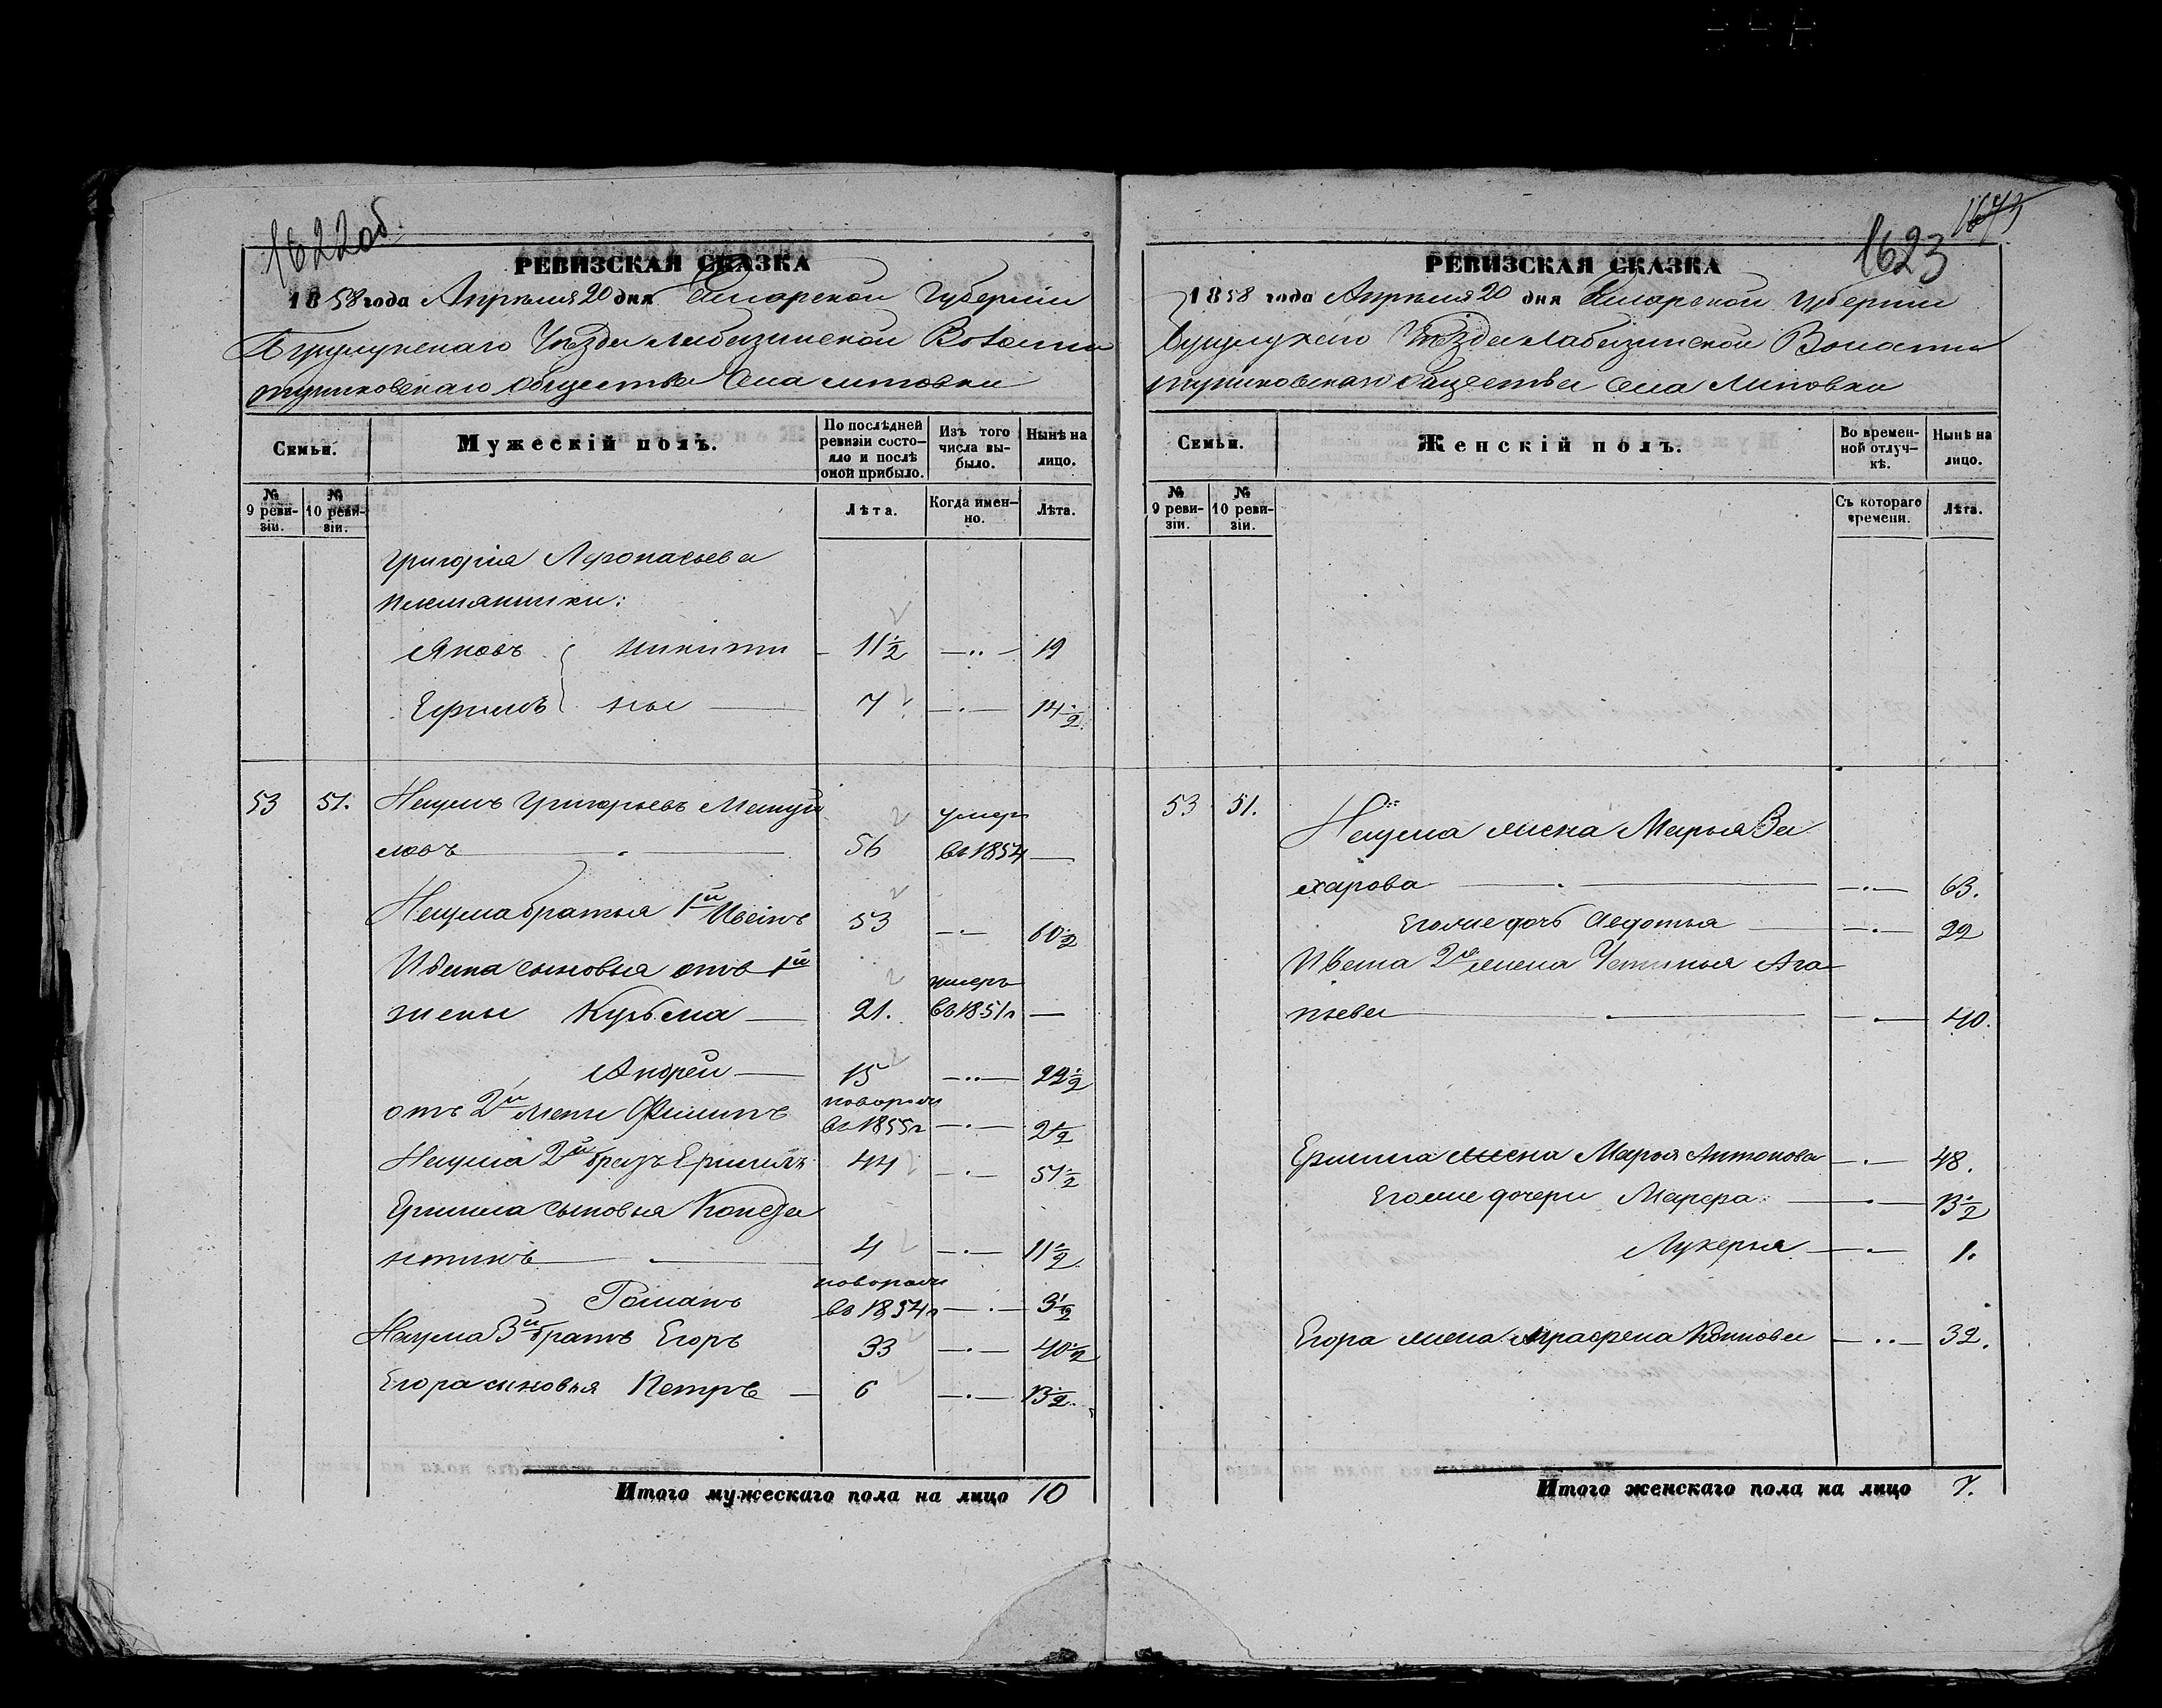 1622об.
РЕВИЗСКАЯ СКАЗКА
1858 года Апреля 20 дня Самарской Губернии
Бузулукскаго Уѣзда Лабазинской Волости
общества Села Липовки
Семьи.
Мужескій полъ.
По послѣдней ревизіи состояло и послѣ оной прибыло.
Изъ того числа выбыло.
Нынѣ на лицо.
№ 9 ревизіи.
№ 10 ревизіи.
Лѣта.
Когда именно.
Лѣта.
Григорія Афонасьева
племянники:
Яковъ Никити 11½ 19
Ефимъ ны 7 14½
53 51. Наумъ Григорьевъ Мануй
ловъ 56 умеръ въ 1854
Наума братья 1й Ивѣнъ 53 60½
Ивана сыновья отъ 1й
жены Кузьма 21. умеръ въ 1851г
Андрей 15 22½
отъ 2й жены Филипъ новорож въ 1855г 2½
Наума 2й братъ Ермилъ 44 51½
Ермила сыновья Конста
нтинъ 4 11½
Романъ новорож въ 1854г 3½
Наума 3й братъ Егоръ 33 40½
Егора сыновья Петръ 6 13½
Итого мужескаго пола на лицо 10
1623
РЕВИЗСКАЯ СКАЗКА
1858 года Апреля 20 дня Самарской Губернии
Бузулукскаго Уѣзда Лабазинской Волости
общества Села Липовки
Семьи.
Женскій полъ.
Во временной отлучкѣ.
Нынѣ на лицо.
№ 9 ревизіи.
№ 10 ревизіи.
Съ котораго времени.
Лѣта.
53 51. Наума жена Марья За
харова 63.
Егоже дочь Авдотья 22
Ивана 2я жена Устинья Ага
пьева 40.
Ермила жена Марья Антонова 48.
Егоже дочери Марфа 13½
Лукерья 1.
Егора жена Аграфена 32.
Итого женскаго пола на лицо 7.